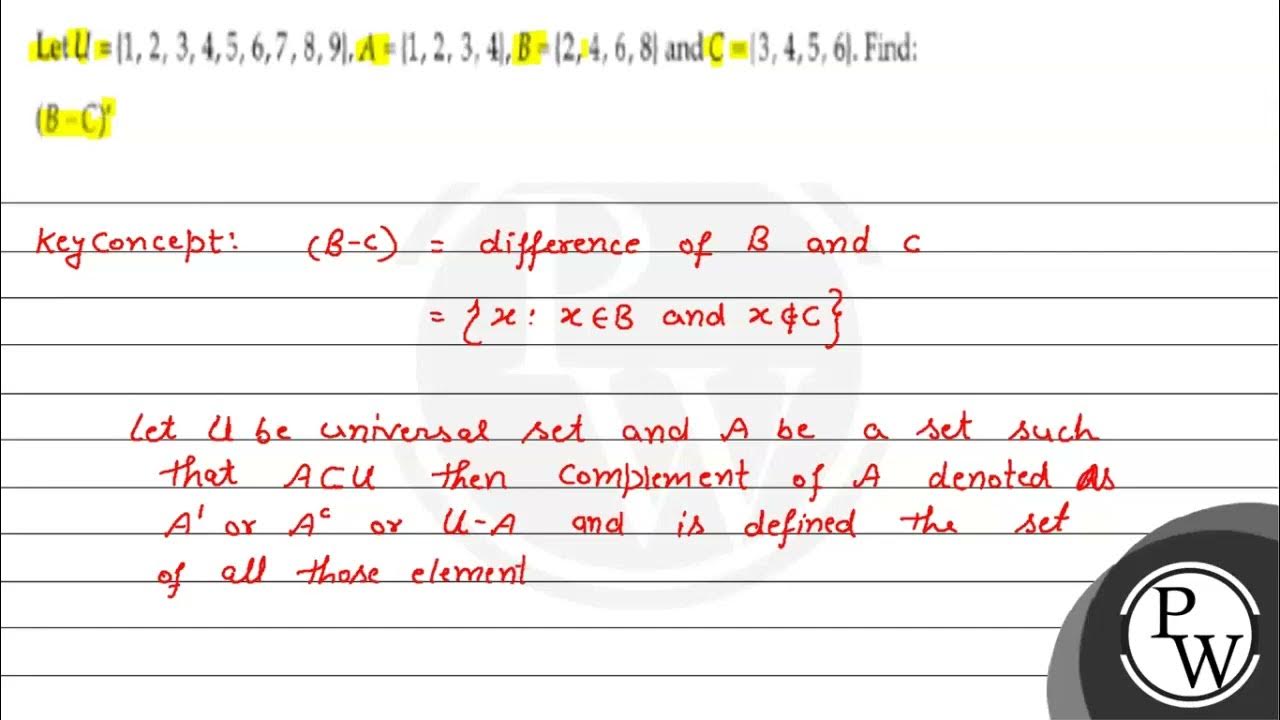 Let U = {1, 2, 3, 4, 5, 6, 7, 8, 9}, A = {1, 2, 3, 4}, B = {2, 4, 6, 8} and C = {3, 4, 5, 6}. Find:
(B – C)'
Key Concept: (B-C) = difference of B and C
= {x: x∈B and x∉C}
Let U be universal set and A be a set such
that A⊂U then complement of A denoted as
A' or Aᶜ or U-A and is defined the set
of all those element
PW
PW